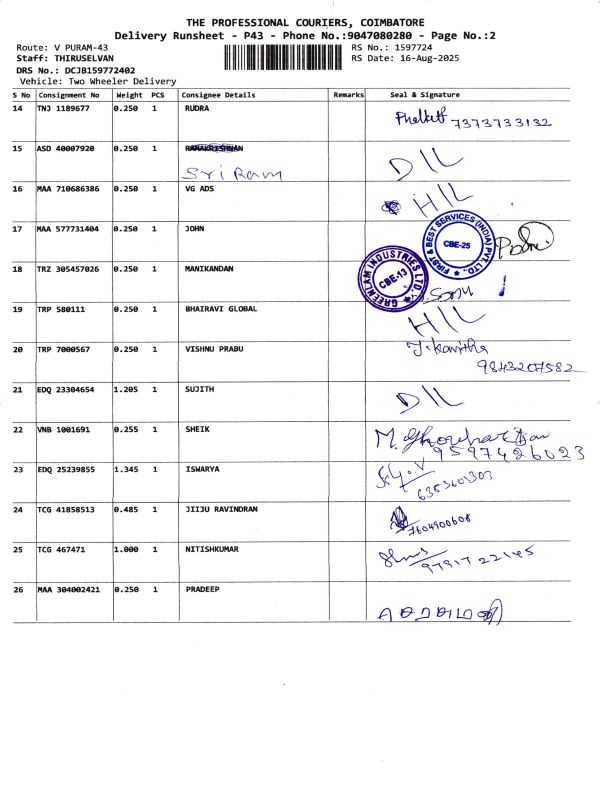 THE PROFESSIONAL COURIERS, COIMBATORE
Delivery Runsheet - P43 - Phone No.:9047080280 - Page No.:2
Route: V PURAM-43 RS No.: 1597724
Staff: THIRUSELVAN RS Date: 16-Aug-2025
DRS No.: DCJB159772402
Vehicle: Two Wheeler Delivery
S No Consignment No Weight PCS Consignee Details Remarks Seal & Signature
14 TNJ 1189677 0.250 1 RUDRA
7373733132
15 ASD 40007920 0.250 1 RAMAKRISHNAN
Sri Ram
D/L
16 MAA 710686386 0.250 1 VG ADS
H/L
17 MAA 577731404 0.250 1 JOHN
FIRST & BEST SERVICES (INDIA) PVT. LTD.,
CBE-25
18 TRZ 305457026 0.250 1 MANIKANDAN
GREENLAM INDUSTRIES LTD.
CBE-13
19 TRP 580111 0.250 1 BHAIRAVI GLOBAL
H/L
20 TRP 7000567 0.250 1 VISHNU PRABU
J. Kavitha
9843207582
21 EDQ 23304654 1.205 1 SUJITH
D/L
22 VNB 1001691 0.255 1 SHEIK
9597426023
23 EDQ 25239855 1.345 1 ISWARYA
6383601303
24 TCG 41858513 0.485 1 JIIJU RAVINDRAN
7604900608
25 TCG 467471 1.000 1 NITISHKUMAR
9791722145
26 MAA 304002421 0.250 1 PRADEEP